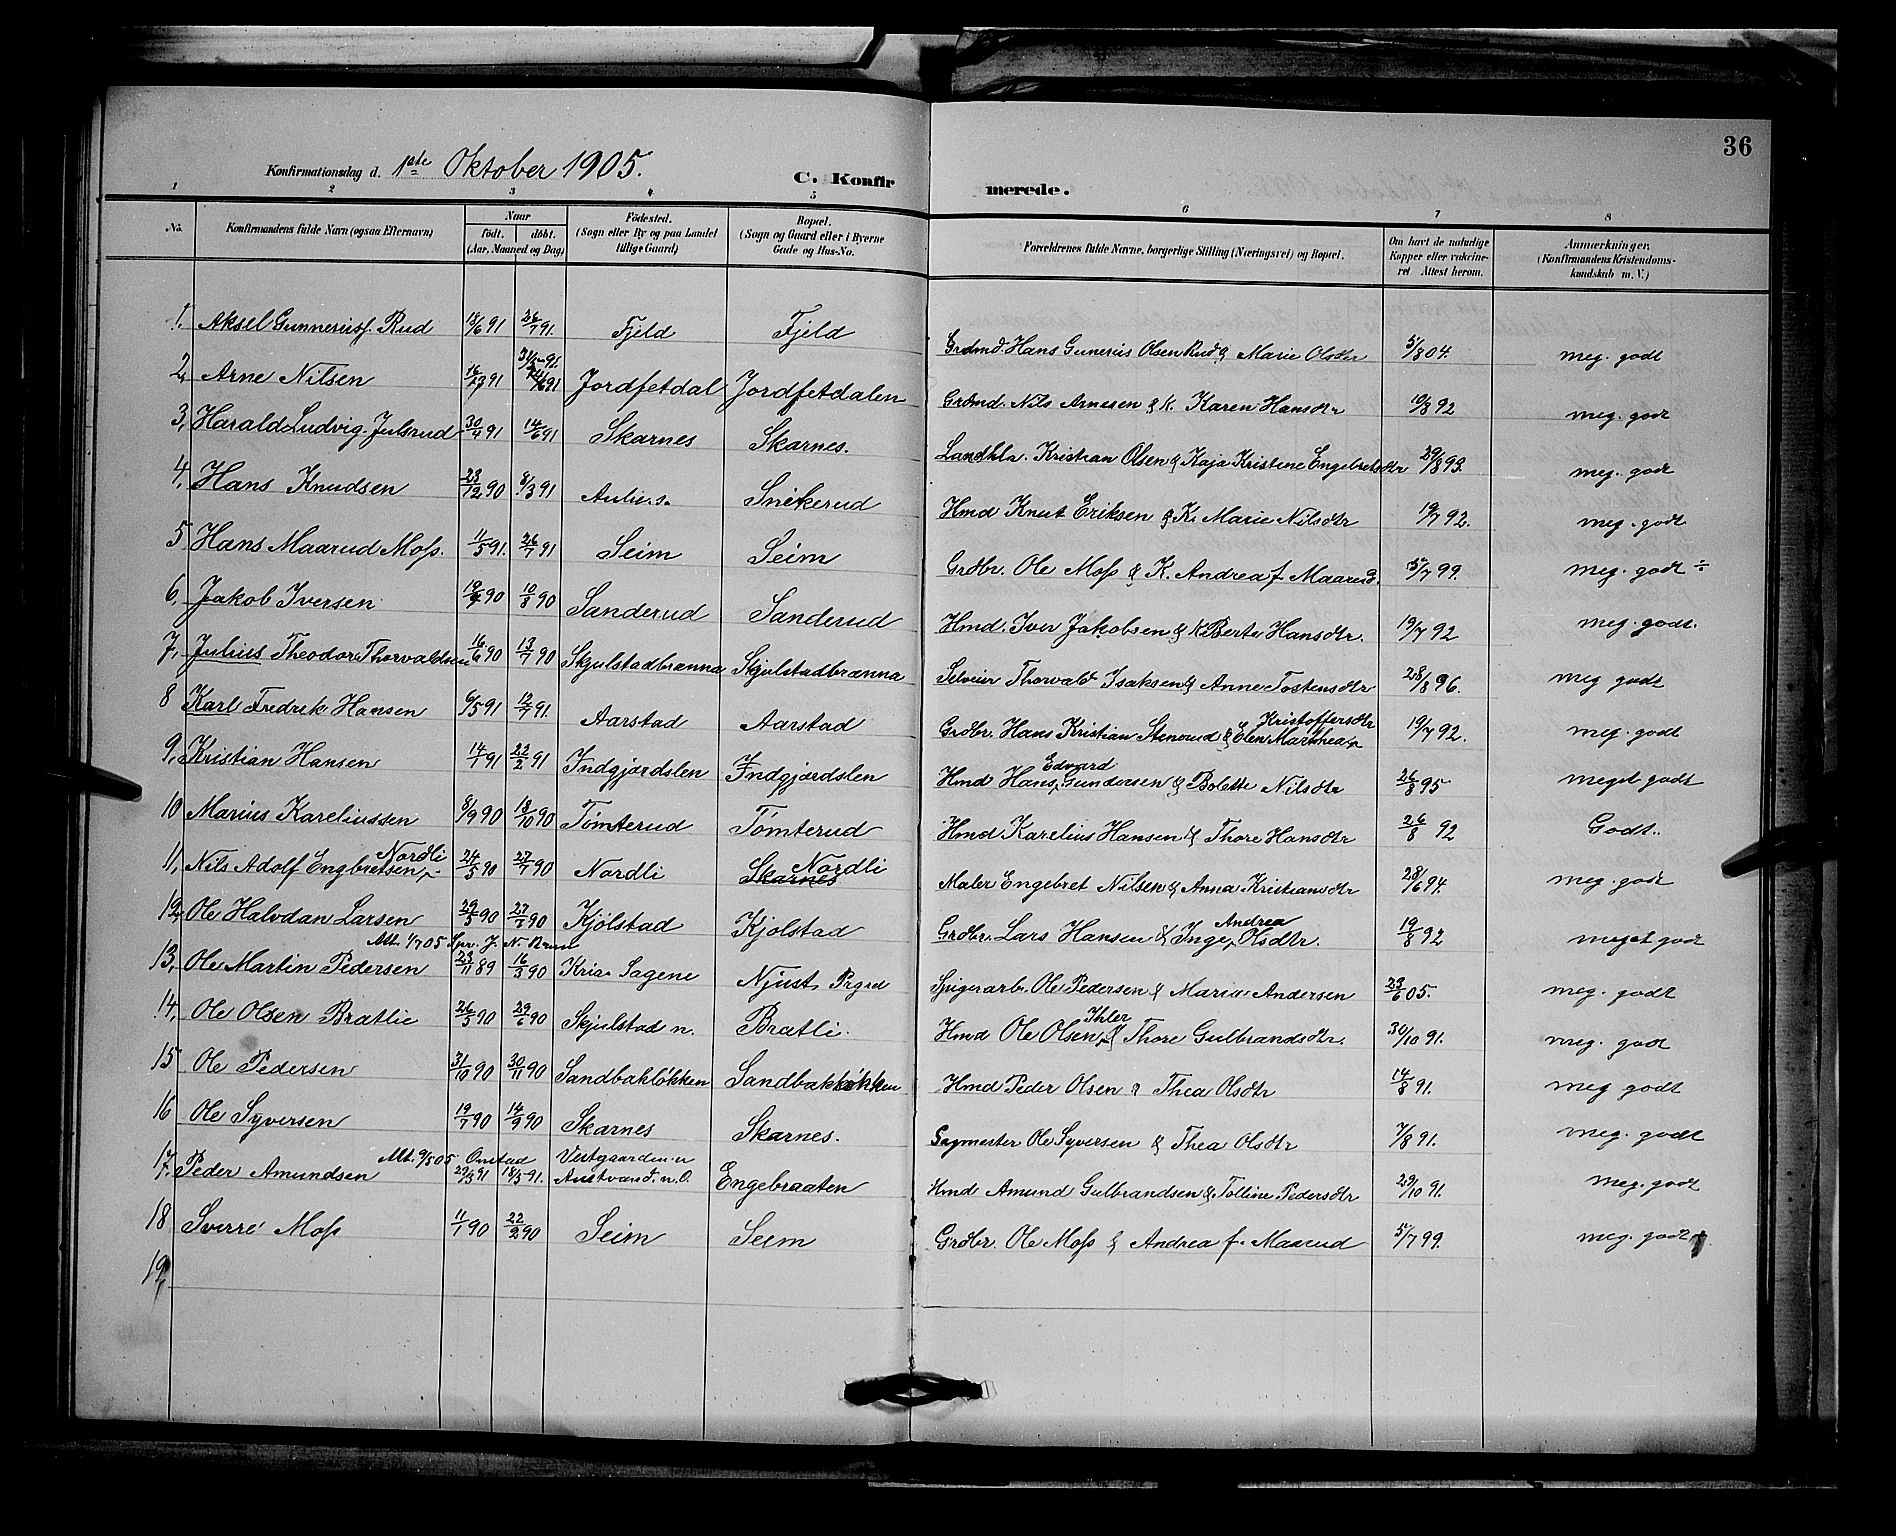 36
Konfirmationsdag d. 1ste Oktober 1905. C. Konfirmerede.
1 2 3 4 5 6 7 8
No. Konfirmandens fulde Navn (ogsaa Efternavn) Naar født. døbt. (Aar, Maaned og Dag) Fødested. (Sogn eller By og paa Landet tillige Gaard) Bopæl. (Sogn og Gaard eller i Byerne Gade og Hus-No. Forældrenes fulde Navne, borgerlige Stilling (Næringsvei) og Bopæl. Om havt de naturlige Kopper eller vakcineret Attest herom. Anmærkninger. (Konfirmandens Kristendomskundskab m. V.)
1, Aksel Gunneriusf. Rud 18/6 91 26/7 91. Fjeld Fjeld Grdmd. Hans Gunerius Olsen Rud & Marie Olsdtr 5/8 04. meg. godt
2, Arne Nilsen 91 91 Jordfetdal Jordfetdalen Grdmd. Nils Arnesen & K. Karen Hansdtr 10/8 92 meg. godt
3, Harald Ludvig Julsrud 30/4 91 14/6 91 Skarnes Skarnes. Landhlr. Kristian Olsen & Kaja Kristine Engebretsdtr 29/8 93. meg. godt
4, Hans Knudsen 23/12 90 8/3 91 Aulie s. Snekerud Hmd Knut Eriksen & K. Marie Nilsdtr 19/7 92. meg. godt
5 Hans Maarud Moss. 11/5 91. 26/7 91 Seim Seim Grdbr. Ole Moss & K. Andrea f Maarud. 5/7 99. meg. godt ÷
6, Jakob Iversen 90 10/8 90 Sanderud Sanderud Hmd. Iver Jakobsen & K. Berte Hansdtr. 19/7 92 meg. godt.
7, Julius Theodor Thorvaldsen 16/6 90 13/7 90 Skjulstadbrænna Skjulstadbrænna Selveier Thorvald Isaksen & Anne Tostensdtr 28/8 96. meg godt
8 Karl Fredrik Hansen 6/5 91 12/7 91. Aarstad Aarstad Grdbr. Hans Kristian Stenrud & Elen Marthea Kristoffersdtr 19/7 92. meg. godt
9, Kristian Hansen 14/1 91 22/2 91 Indgjærdslen Indgjærdslen Hmd Hans Edvard Gundersen & Bolette Nilsdtr 26/8 95 meget godt
10 Marius Kareliussen 8/9 90 18/10 90 Tømterud Tømterud Hmd Karelius Hansen & Thore Hansdtr 26/8 92 Godt..
11, Nils Adolf Engbretsen Nordli 24/5 90 27/7 90 Nordli Skarnes Nordli Maler Engebret Nilsen & Anna Kristiansdtr 28/6 94. meg. godt
12, Ole Halvdan Larsen 90 90 Kjølstad Kjølstad Grdbr. Lars Hansen & Inge Andrea Olsdtr. 19/8 92 meget godt
Att. 1/7 05 Spr. J. N. Brun
13, Ole Martin Pedersen 23/11 89 16/3 90 Kria. Sagene Njust, Prgrd arb. Ole Pedersen & Maria Andersen 23/6 05. meg. godt
14, Ole Olsen Bratlie 26/5 90 29/6 90 Skjulstad n. Bratli. Hmd Ole Olsen Ihler & Thore Gulbrandsdtr. 30/10 91. meg. godt
15 Ole Pedersen 31/10 90 30/11 90 Sandbakløkken Sandbakløkken Hmd Peder Olsen & Thea Olsdtr 14/8 91. meg godt
16 Ole Syversen 19/7 90 14/9 90 Skarnes Skarnes. Sagmester Ole Syversen & Thea Olsdtr 7/8 91. meg. godt
Att. 9/5 05 Onstad Vestgaarden
17, Peder Amundsen 91 91. Austvand. n. O. Engebraaten Hmd Amund Gulbrandsen & Tolline Pedersdtr 29/10 91. meg. godt
18 Sverre Moss 11/1 90 22/2 90 Seim Seim Grdbr. Ole Moss & Andrea f. Maarud 5/7 99. meg. godt
19,